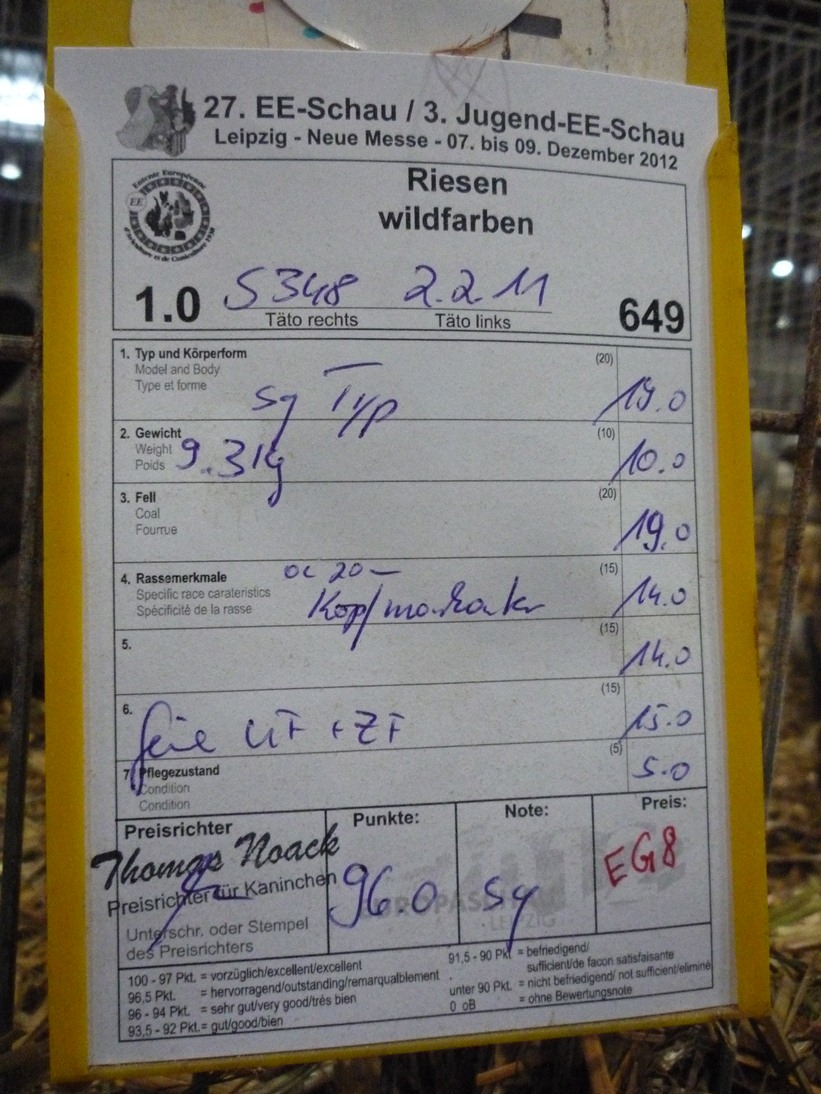 27. EE-Schau / 3. Jugend-EE-Schau
Leipzig - Neue Messe - 07. bis 09. Dezember 2012
Entente Européenne
EE
d'Aviculture et de Cuniculture 1938
Riesen
wildfarben
1.0 S348 2.2.11 649
Täto rechts Täto links
1. Typ und Körperform (20)
Model and Body
Type et forme
sg Typ 19.0
2. Gewicht (10)
Weight 9.3kg
Poids 10.0
3. Fell (20)
Coal
Fourrue 19.0
4. Rassemerkmale 20- (15)
Specific race carateristics
Spécificité de la rasse 14.0
5. (15)
14.0
6. (15)
feine UF + ZF 15.0
7. Pflegezustand (5)
Condition 5.0
Condition
Preisrichter Punkte: Note: Preis:
Thomas Noack
Preisrichter für Kaninchen 96.0 sg EG8
EUROPASCHAU
LEIPZIG
Unterschr. oder Stempel
des Preisrichters
100 - 97 Pkt. = vorzüglich/excellent/excellent
96,5 Pkt. = hervorragend/outstanding/remarqualblement
96 - 94 Pkt. = sehr gut/very good/trés bien
93,5 - 92 Pkt. = gut/good/bien
91,5 - 90 Pkt = befriedigend/
sufficient/de facon satisfaisante
unter 90 Pkt. = nicht befriedigend/ not sufficient/eliminé
0 oB = ohne Bewertungsnote